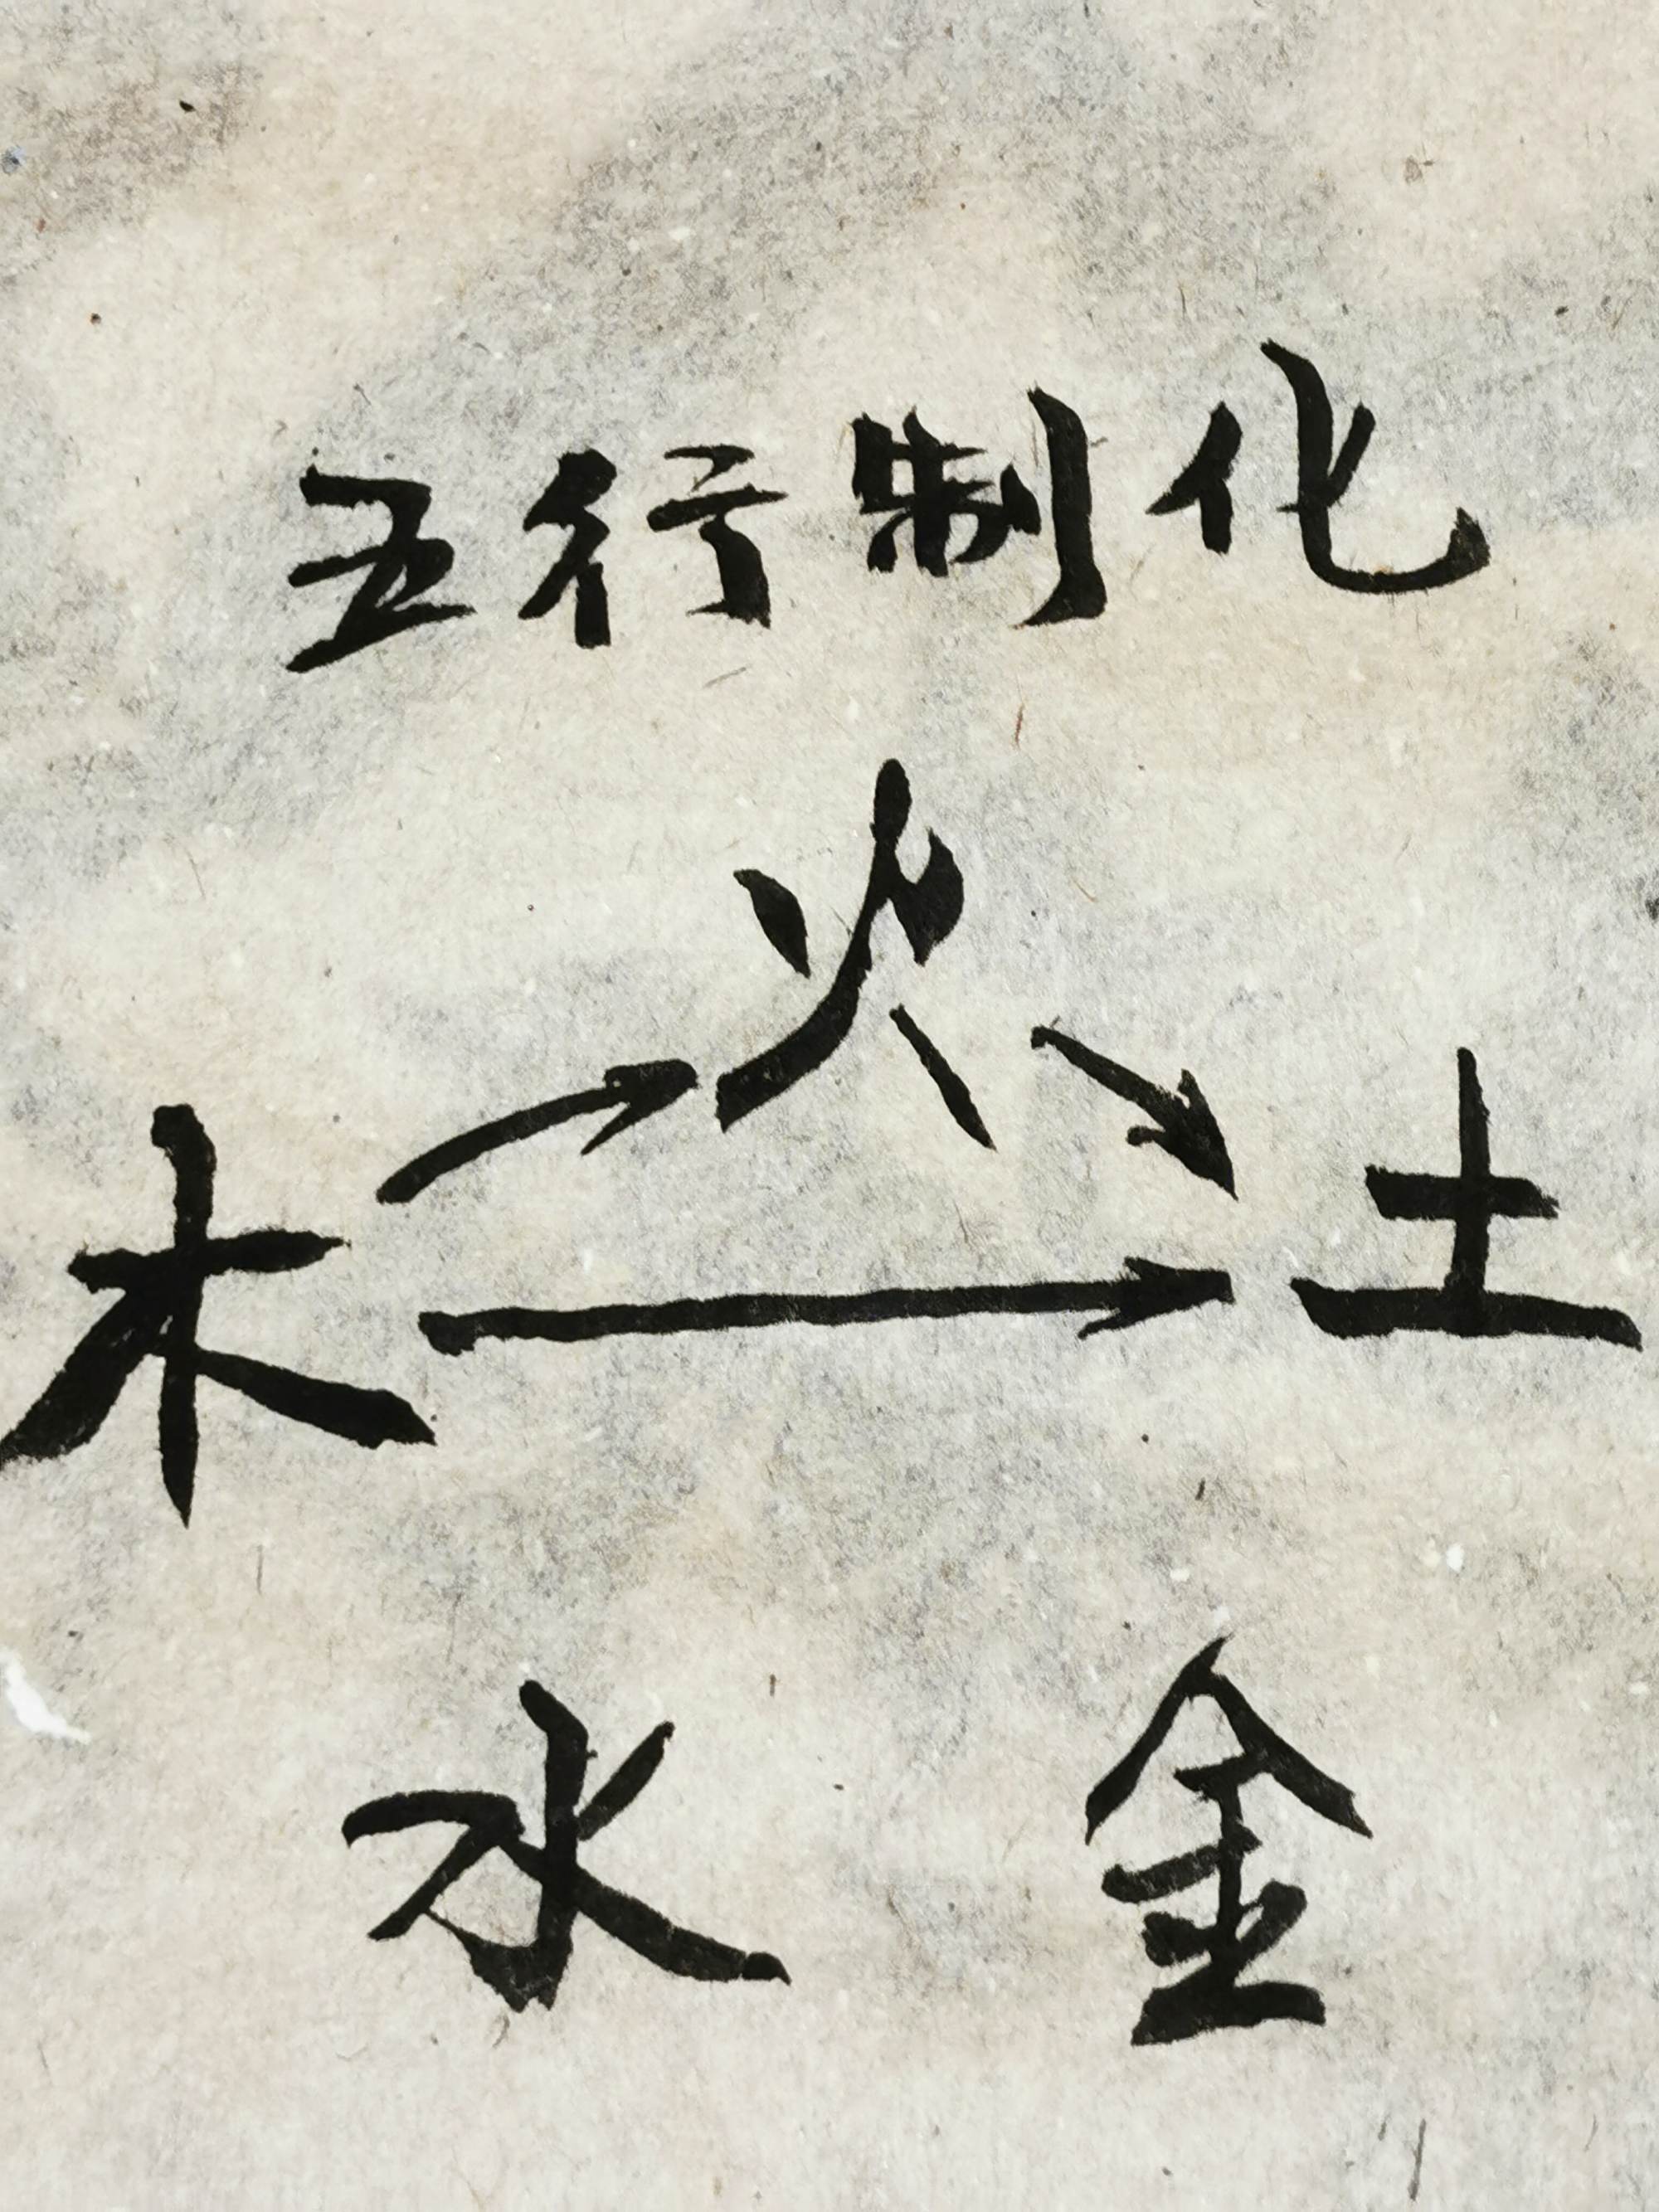 五行制化
火
木 土
水 金